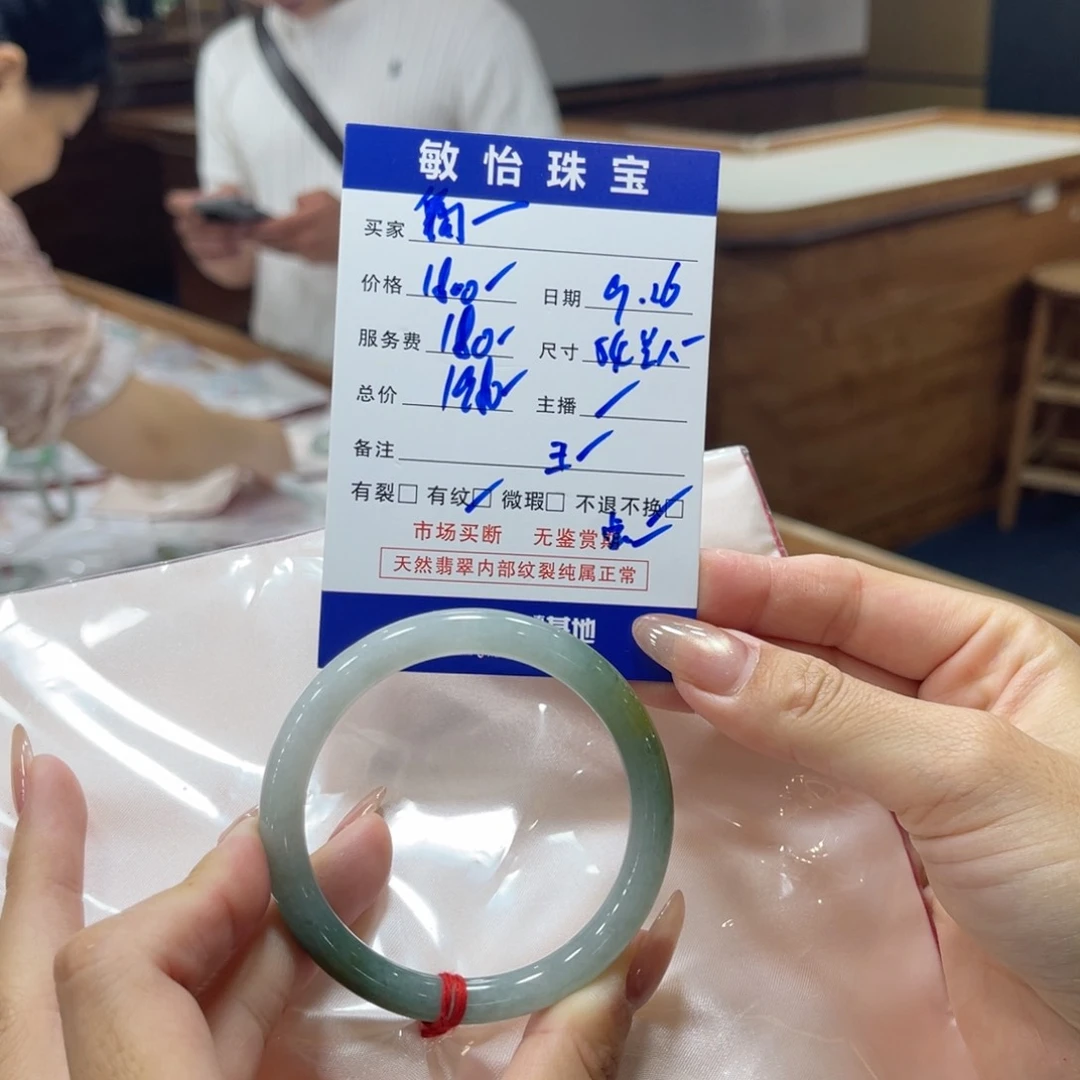 敏怡珠宝
买家
价格 1800 日期 9.26
服务费 180 尺寸 54
总价 1980 主播
备注 王
有裂□ 有纹☑ 微瑕□ 不退不换☑
市场买断 无鉴赏期
天然翡翠内部纹裂纯属正常
基地